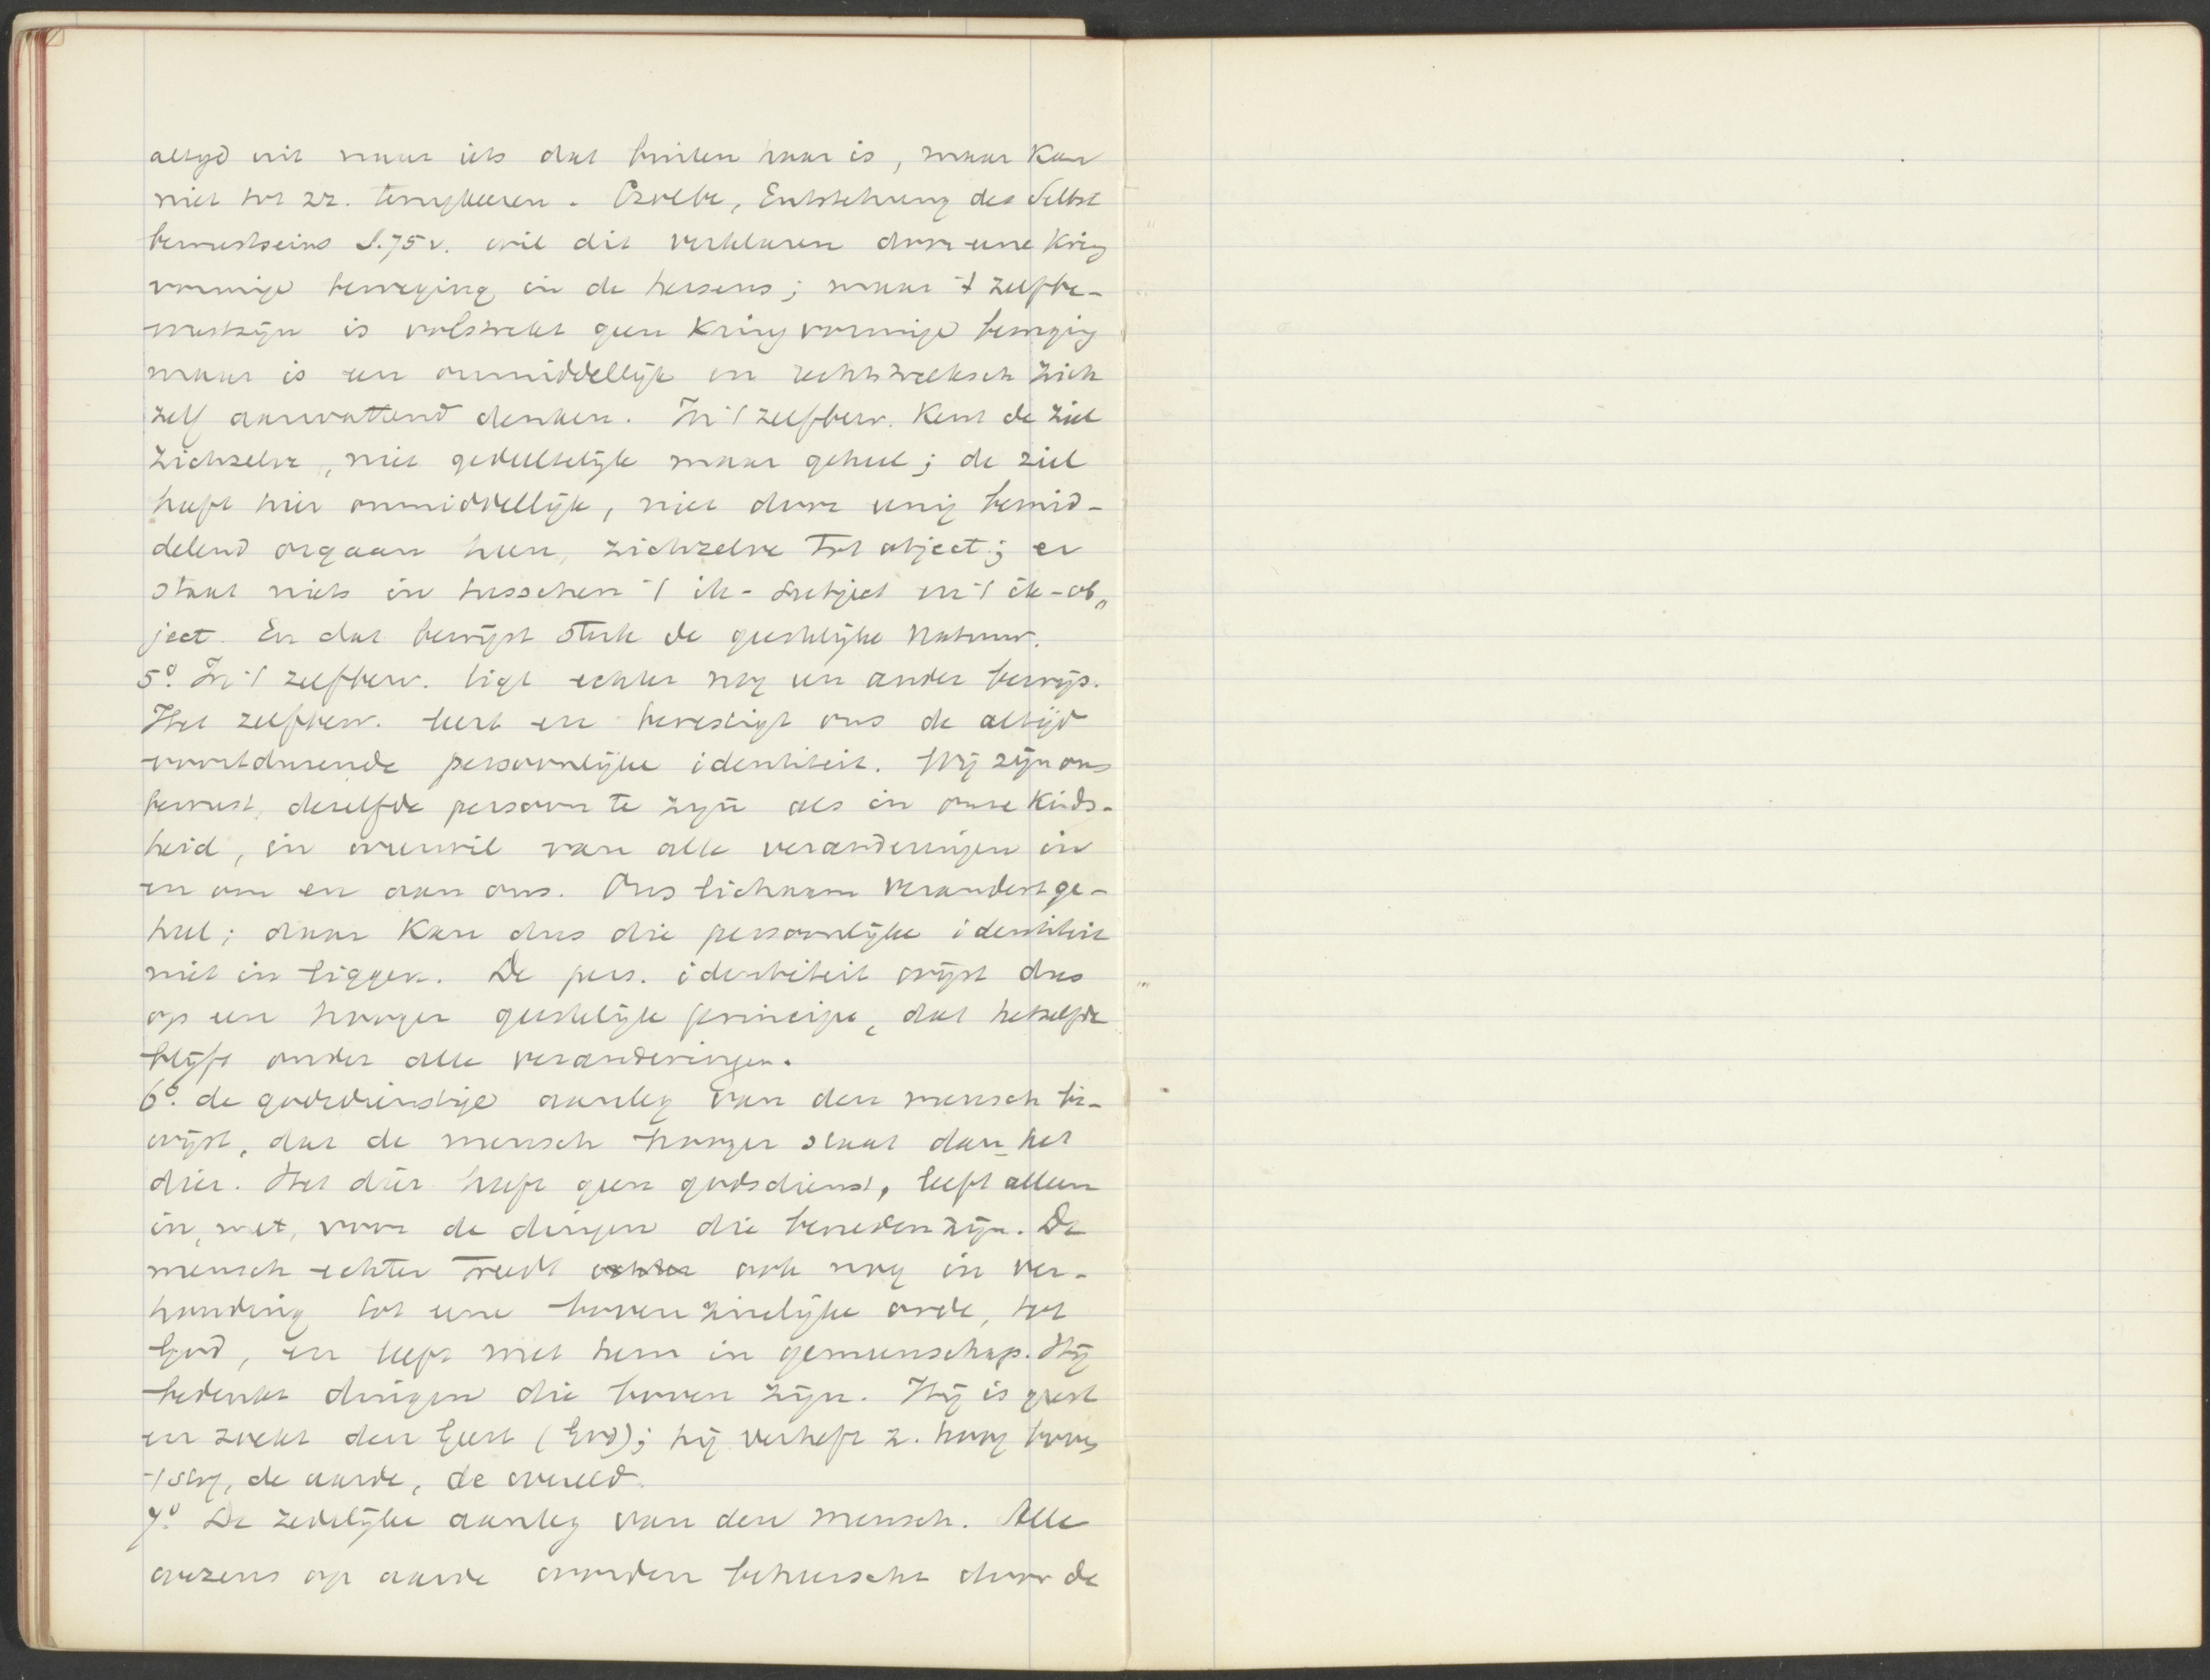 altyd uit naar iets dat buiten haar is, maar kan
niet tot zz. terugkeeren. Czolbe, Entstehung des Selbst
bewustseins S. 75 v. wil dit verklaren door eene kring
vormige beweging in de hersens; maar 't zelfbe-
wustzijn is volstrekt geen kringvormige beweging
maar is een onmiddellijk en rechtstreeksch zich
zelf aanvattend denken. In 't zelfbew. kent de ziel
zichzelve, niet gedeeltelijk maar geheel; de ziel
heeft hier onmiddellijk, niet door eenig bemid-
delend orgaan heen, zichzelve tot object; er
staat niets in tusschen 't ik-subject en 't ik-ob„
ject. En dat bewijst sterk de geestelijke natuur.
5°. In 't zelfbew. ligt echter nog een ander bewijs.
Het zelfbew. leert en bevestigt ons de altijd
voortdurende persoonlijke identiteit. Wij zijn ons
bewust, dezelfde persoon te zijn als in onze kinds-
heid, in weerwil van alle veranderingen in
en om en aan ons. Ons lichaam verandert ge-
heel; daar kan dus die persoonlijke identiteit
niet in liggen. De pers. identiteit wijst dus
op een hooger geestelijk principe, dat hetzelfde
blijft onder alle veranderingen.
6°. de godsdienstige aanleg van den mensch be-
wijst, dat de mensch hooger staat dan het
dier. Het dier heeft geen godsdienst, leeft alleen
in, met, voor de dingen die beneden zijn. De
mensch echter treedt echter ook nog in ver-
houding tot eene bovenzinelijke orde, tot
God, en leeft met hem in gemeenschap. Hij
bedenkt dingen die boven zijn. Hij is geest
en zoekt den Geest (God); hij verheft z. hoog boven
't stof, de aarde, de wereld.
7°. De zedelijke aanleg van den mensch. Alle
wezens op aarde worden beheerscht door de